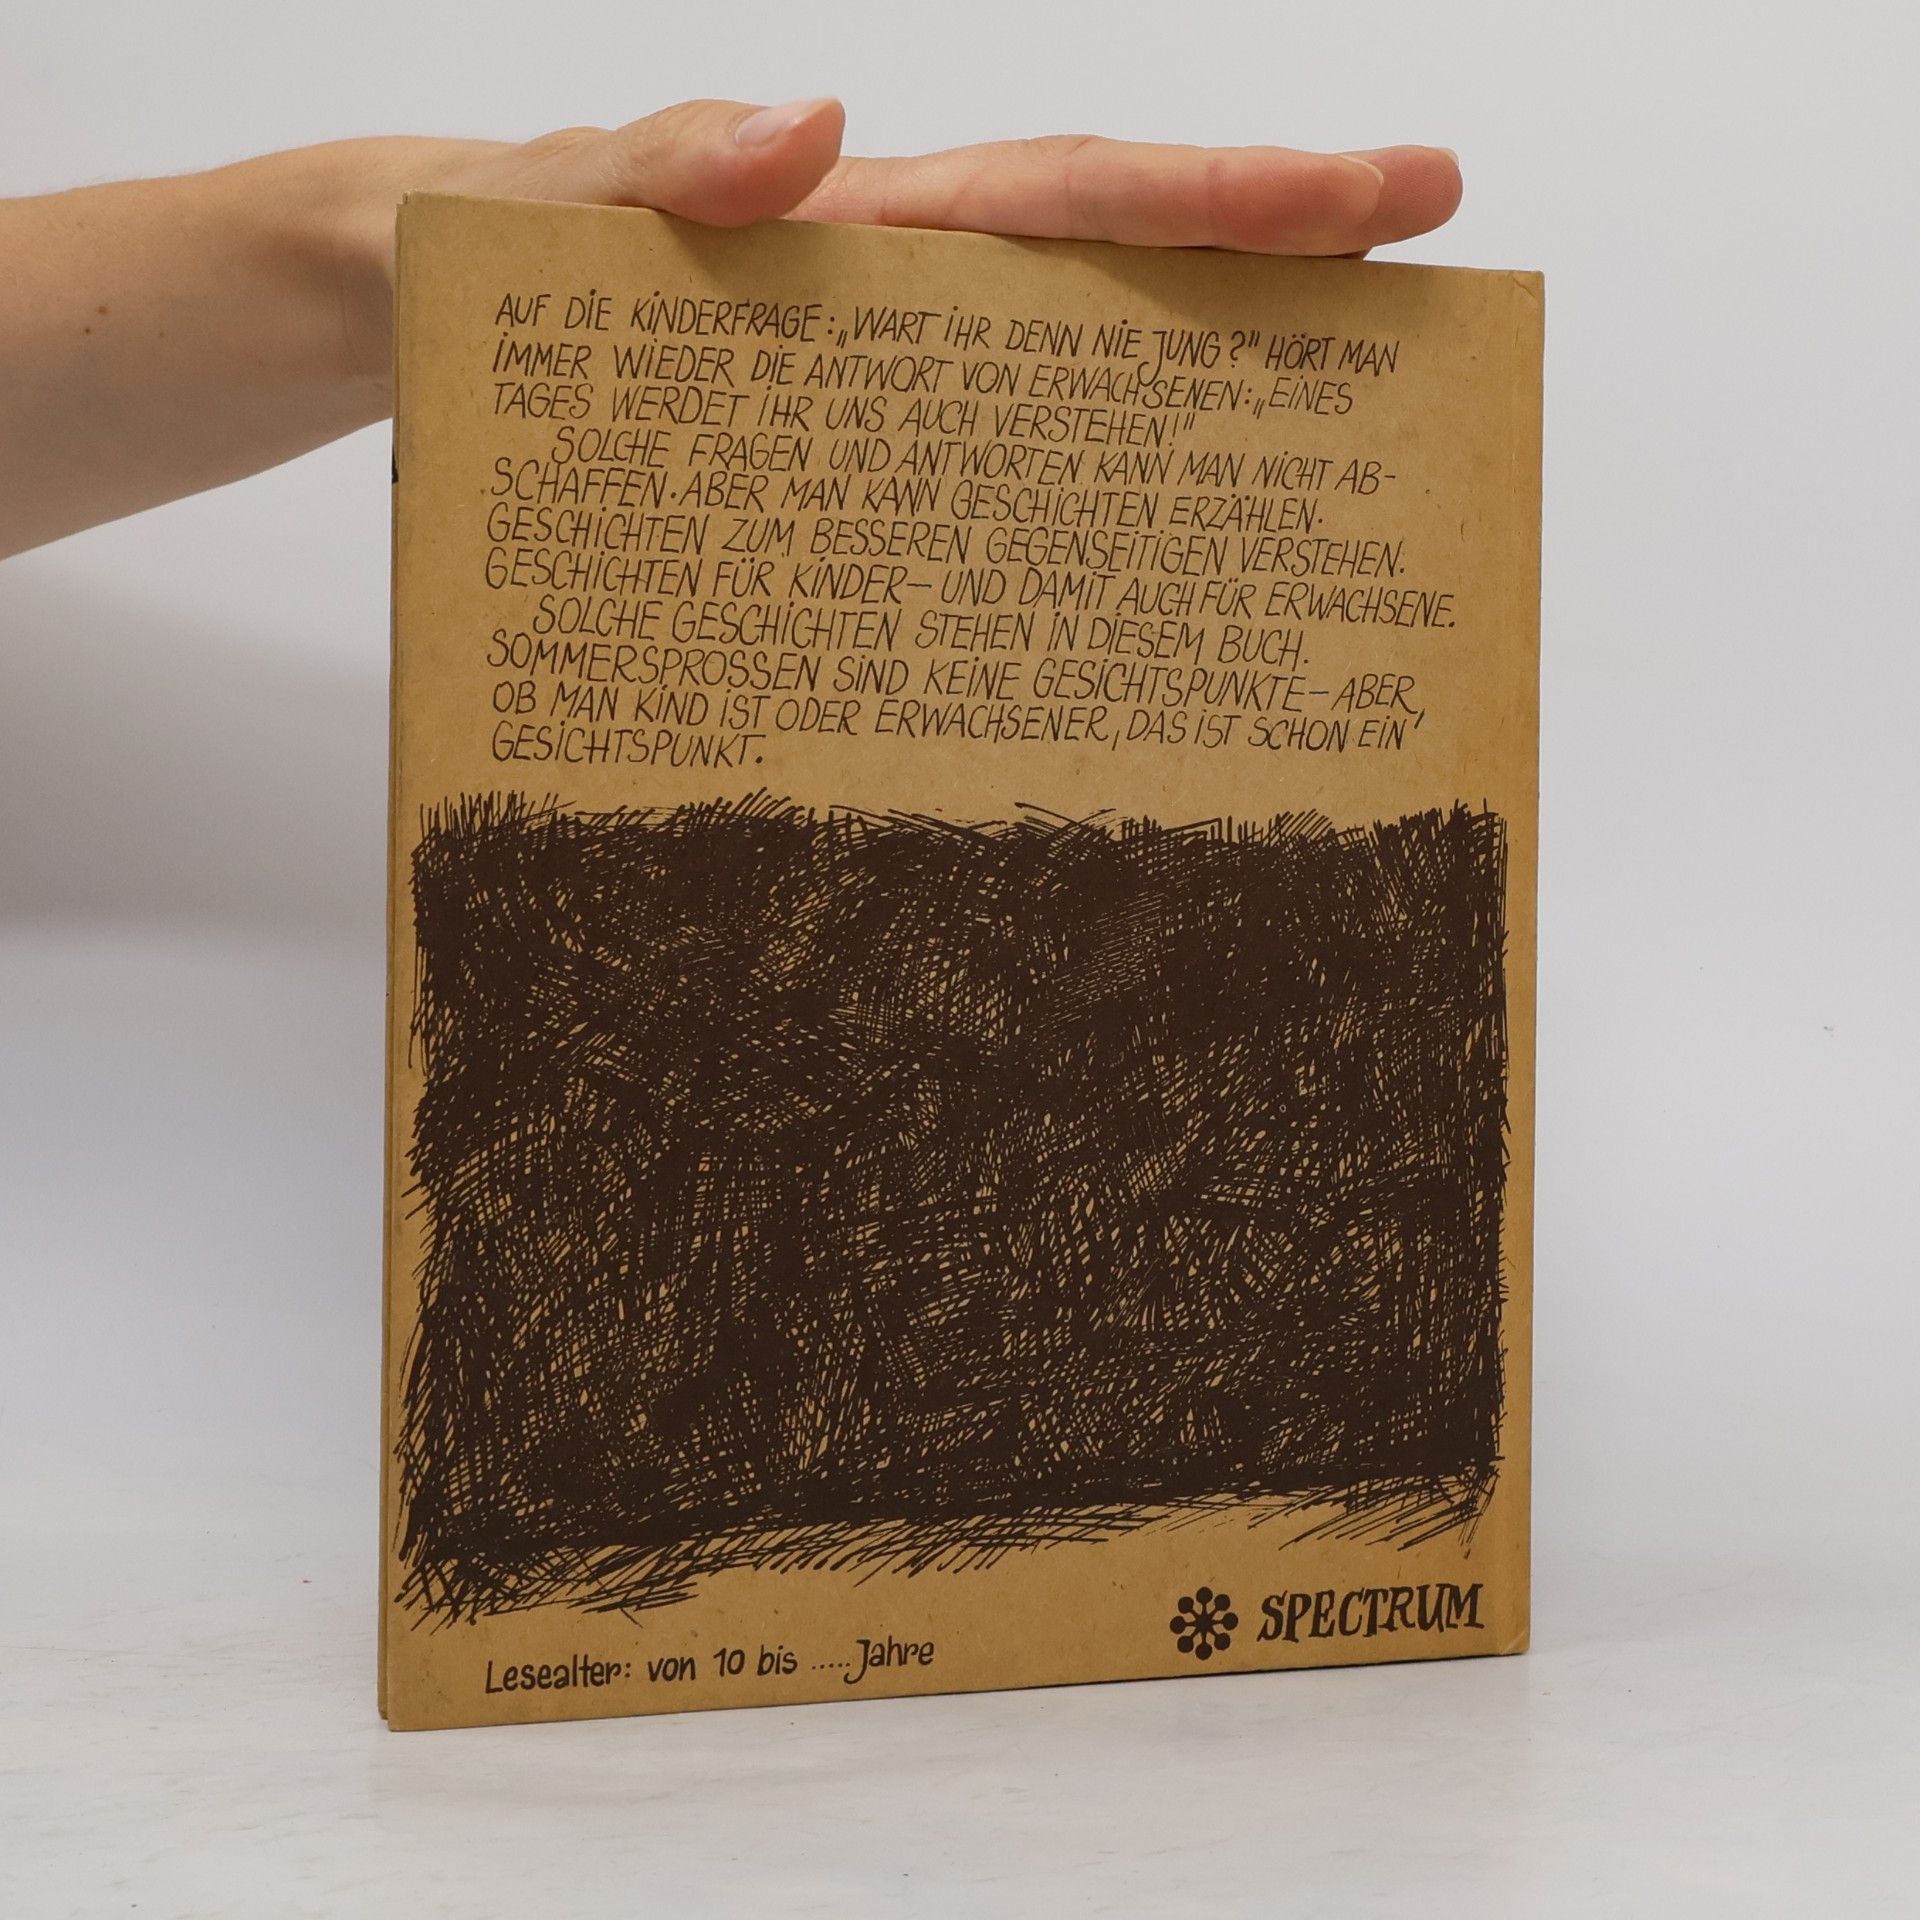 AUF DIE KINDERFRAGE: „WART IHR DENN NIE JUNG?" HÖRT MAN
IMMER WIEDER DIE ANTWORT VON ERWACHSENEN: „EINES
TAGES WERDET IHR UNS AUCH VERSTEHEN!"
SOLCHE FRAGEN UND ANTWORTEN KANN MAN NICHT AB-
SCHAFFEN. ABER MAN KANN GESCHICHTEN ERZÄHLEN.
GESCHICHTEN ZUM BESSEREN GEGENSEITIGEN VERSTEHEN.
GESCHICHTEN FÜR KINDER – UND DAMIT AUCH FÜR ERWACHSENE.
SOLCHE GESCHICHTEN STEHEN IN DIESEM BUCH.
SOMMERSPROSSEN SIND KEINE GESICHTSPUNKTE – ABER,
OB MAN KIND IST ODER ERWACHSENER, DAS IST SCHON EIN
GESICHTSPUNKT.
SPECTRUM
Lesealter: von 10 bis ..... Jahre